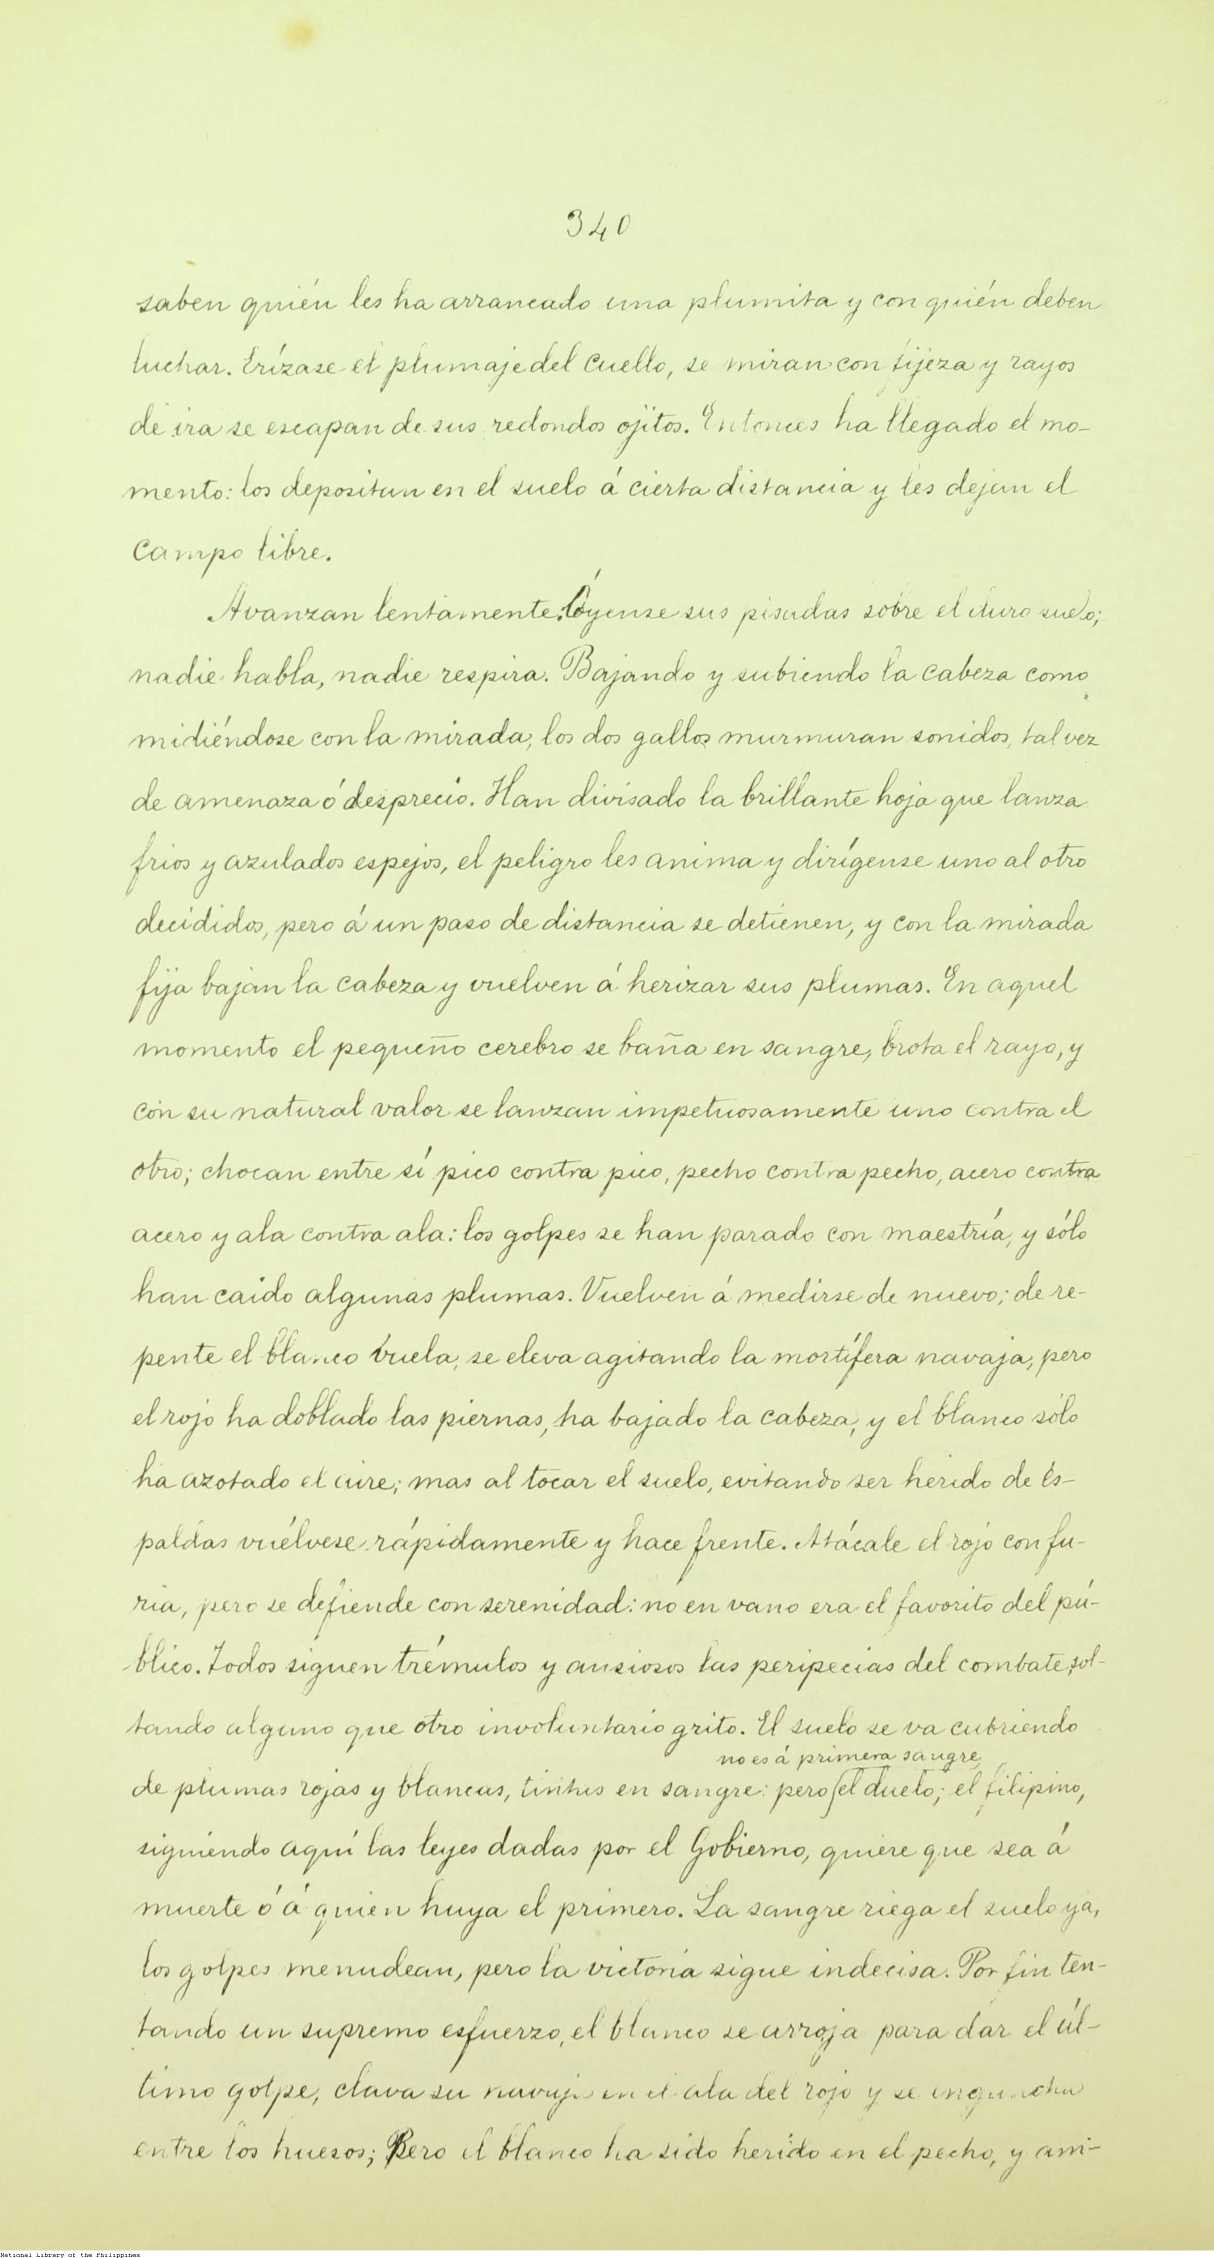 340
saben quién les ha arrancado una plumita y con quién deben
luchar. Erízase el plumaje del cuello, se miran con fijeza y rayos
de ira se escapan de sus redondos ojitos. Entonces ha llegado el mo-
mento: los depositan en el suelo á cierta distancia y les dejan el
campo libre.
Avanzan lentamente. Óyense sus pisadas sobre el duro suelo;
nadie habla, nadie respira. Bajando y subiendo la cabeza como
midiéndose con la mirada, los dos gallos murmuran sonidos, tal vez
de amenaza ó desprecio. Han divisado la brillante hoja que lanza
frios y azulados espejos, el peligro les anima y dirígense uno al otro
decididos, pero á un paso de distancia se detienen, y con la mirada
fija bajan la cabeza y vuelven á herizar sus plumas. En aquel
momento el pequeño cerebro se baña en sangre, brota el rayo, y
con su natural valor se lanzan impetuosamente uno contra el
otro; chocan entre sí pico contra pico, pecho contra pecho, acero contra
acero y ala contra ala: los golpes se han parado con maestría, y sólo
han caido algunas plumas. Vuelven á medirse de nuevo; de re-
pente el blanco vuela, se eleva agitando la mortífera navaja, pero
el rojo ha doblado las piernas, ha bajado la cabeza, y el blanco sólo
ha azotado el aire; mas al tocar el suelo, evitando ser herido de es-
paldas vuélvese rápidamente y hace frente. Atácale el rojo con fu-
ria, pero se defiende con serenidad: no en vano era el favorito del pú-
blico. Todos siguen trémulos y ansiosos las peripecias del combate, sol-
tando alguno que otro involuntario grito. El suelo se va cubriendo
no es á primera sangre
de plumas rojas y blancas, tintas en sangre: pero el duelo; el filipino,
siguiendo aquí las leyes dadas por el Gobierno, quiere que sea á
muerte ó á quien huya el primero. La sangre riega el suelo ya,
los golpes menudean, pero la victoria sigue indecisa. Por fin ten-
tando un supremo esfuerzo, el blanco se arroja para dar el úl-
timo golpe, clava su navaja en el ala del rojo y se engancha
entre los huesos; Pero el blanco ha sido herido en el pecho, y am-
National Library of the Philippines